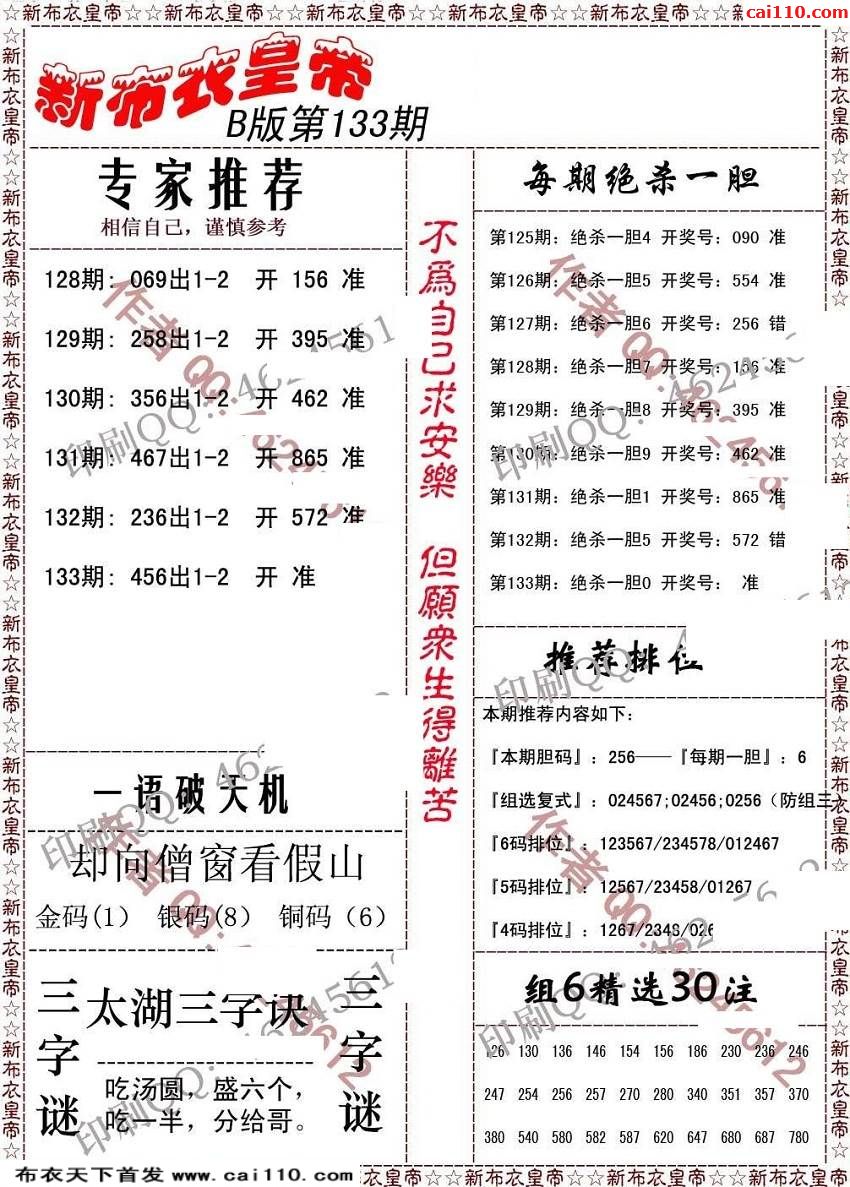 ☆☆新布衣皇帝☆☆新布衣皇帝☆☆新布衣皇帝☆☆新布衣皇帝☆☆新布衣皇帝☆☆新布衣皇帝☆☆
cai110.com
新布衣皇帝
B版第133期
专家推荐
相信自己，谨慎参考
128期: 069出1-2 开 156 准
129期: 258出1-2 开 395 准
130期: 356出1-2 开 462 准
131期: 467出1-2 开 865 准
132期: 236出1-2 开 572 准
133期: 456出1-2 开 准
一语破天机
却向僧窗看假山
金码(1) 银码(8) 铜码（6）
三字谜
太湖三字诀
吃汤圆，盛六个，
吃一半，分给哥。
三字谜
不爲自己求安樂 但願衆生得離苦
每期绝杀一胆
第125期: 绝杀一胆4 开奖号: 090 准
第126期: 绝杀一胆5 开奖号: 554 准
第127期: 绝杀一胆6 开奖号: 256 错
第128期: 绝杀一胆7 开奖号: 156 准
第129期: 绝杀一胆8 开奖号: 395 准
第130期: 绝杀一胆9 开奖号: 462 准
第131期: 绝杀一胆1 开奖号: 865 准
第132期: 绝杀一胆5 开奖号: 572 错
第133期: 绝杀一胆0 开奖号: 准
推荐排位
本期推荐内容如下:
『本期胆码』: 256——『每期一胆』: 6
『组选复式』: 024567;02456;0256（防组三）
『6码排位』: 123567/234578/012467
『5码排位』: 12567/23458/01267
『4码排位』: 1267/2348/026
组6精选30注
126 130 136 146 154 156 186 230 236 246
247 254 256 257 270 280 340 351 357 370
380 540 580 582 587 620 647 680 687 780
布衣天下首发 www.cai110.com
衣皇帝☆☆新布衣皇帝☆☆新布衣皇帝☆☆新布衣皇帝☆☆